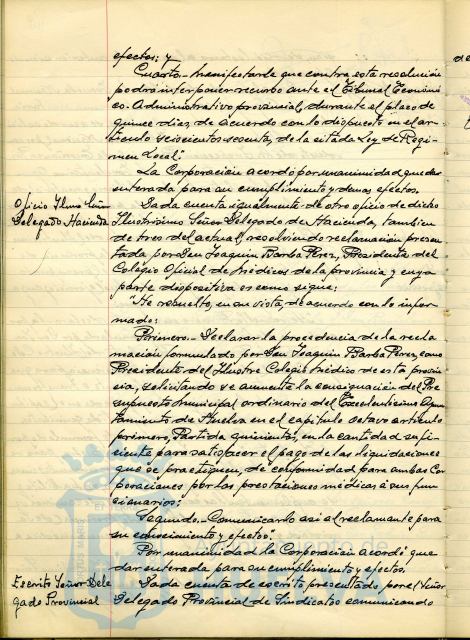 efectos; y
Cuarto.- Manifestarle que contra esta resolución
podrá interponer recurso ante el Tribunal Económi
co-Administrativo provincial, durante el plazo de
quince días, de acuerdo con lo dispuesto en el ar-
tículo seiscientos sesenta, de la citada Ley de Régi-
men Local."
La Corporación acordó por unanimidad quedar
enterada para su cumplimiento y demás efectos.
Oficio Iltmo Señor
Delegado Hacienda
Dada cuenta igualmente de otro oficio de dicho
Ilustrísimo Señor Delegado de Hacienda, también
de tres del actual, resolviendo reclamación presen-
tada por Don Joaquín Barba Pérez, Presidente del
Colegio Oficial de Médicos de la provincia y cuya
parte dispositiva es como sigue:
"He resuelto, en su vista, de acuerdo con lo infor-
mado:
Primero.- Declarar la procedencia de la recla
mación formulada por Don Joaquín Barba Pérez, como
Presidente del Ilustre Colegio Médico de esta provin
cia, solicitando se aumente la consignación del Pre
supuesto Municipal ordinario del Excelentísimo Ayun
tamiento de Huelva en el capítulo octavo artículo
primero, Partida quinientos, en la cantidad sufi-
ciente para satisfacer el pago de las liquidaciones
que se practiquen, de conformidad para ambas Cor
poraciones por las prestaciones médicas a sus fun
cionarios;
Segundo.- Comunicarlo así al reclamante para
su conocimiento y efectos".
Por unanimidad la Corporación acordó que
dar enterada para su cumplimiento y efectos.
Escrito Señor Dele
gado Provincial
Dada cuenta de escrito presentado por el Señor
Delegado Provincial de Sindicatos comunicando